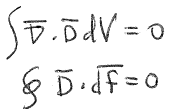 ∫ D̅ · D̅ dV = 0
∮ D̅ · d̅f̅ = 0